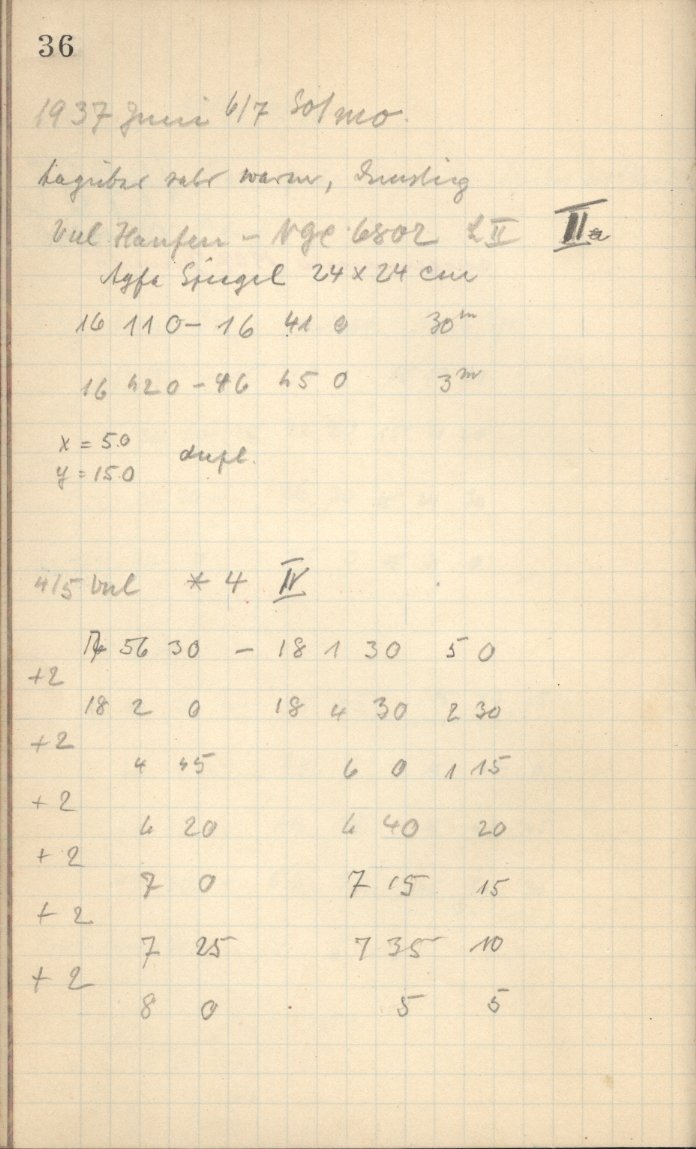 36
1937 Juni 6/7 So/Mo.
tagsüber sehr warm, dunstig
Vul Haufen - NGC 6802 L II IIa
Agfa Spiegel 24 x 24 cm
16 11 0 - 16 41 0 30m
16 42 0 - 16 45 0 3m
x = 5.0 dupl.
y = 15.0
4/5 Vul * 4 IV
56 30 - 18 1 30 5 0
+2
18 2 0 18 4 30 2 30
+2
4 45 6 0 1 15
+2
6 20 6 40 20
+2
7 0 7 15 15
+2
7 25 7 35 10
+2
8 0 5 5